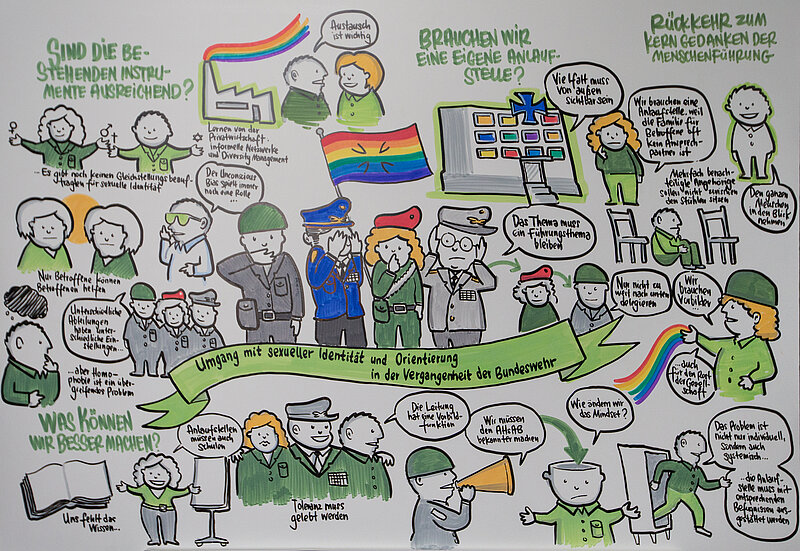 SIND DIE BE-
STEHENDEN INSTRU-
MENTE AUSREICHEND?
Austausch
ist wichtig
Lernen von der
Privatwirtschaft
informelle Netzwerke
und Diversity Management
...Es gibt noch keinen Gleichstellungsbeauf-
tragten für sexuelle Identität
Der Unconscious
Bias spielt immer
noch eine Rolle...
Nur Betroffene können
Betroffenen helfen
Unterschiedliche
Abteilungen
haben unter-
schiedliche Ein-
stellungen...
...aber Homo-
phobie ist ein über-
greifendes Problem
BRAUCHEN WIR
EINE EIGENE ANLAUF-
STELLE?
Vielfalt muss
von außen
sichtbar sein
Wir brauchen eine
Anlaufstelle, weil
die Familie für
Betroffene oft
kein Ansprech-
partner ist
Das Thema muss
ein Führungsthema
bleiben
RÜCKKEHR ZUM
KERNGEDANKEN DER
MENSCHENFÜHRUNG
Den ganzen
Menschen
in den Blick
nehmen
Mehrfach benach-
teiligte Angehörige
sollen nicht zwischen
den Stühlen sitzen
Nur nicht zu
weit nach unten
delegieren
Wir
brauchen
Vorbilder...
...auch
für den Rest
der Gesell-
schaft
Umgang mit sexueller Identität und Orientierung
in der Vergangenheit der Bundeswehr
WAS KÖNNEN
WIR BESSER MACHEN?
Uns fehlt das
Wissen...
Anlaufstellen
müssen auch
schulen
Toleranz muss
gelebt werden
Die Leitung
hat eine Vorbild-
funktion
Wir müssen
den AHsAB
bekannter machen
Wie ändern wir
das Mindset?
Das Problem ist
nicht nur individuell,
sondern auch
systemisch...
...die Anlauf-
stelle muss mit
entsprechenden
Befugnissen aus-
gestattet werden